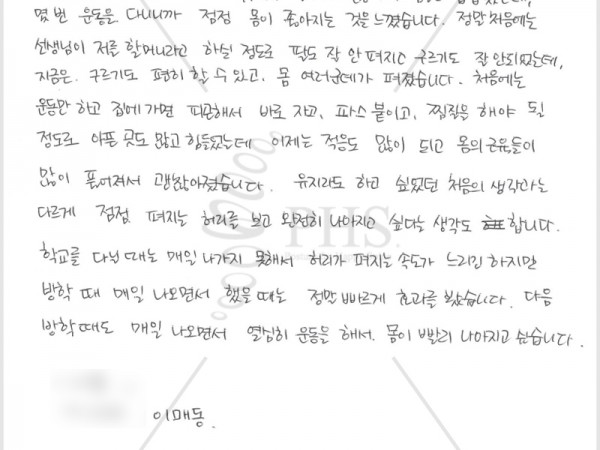 몇 번 운동을 다니니까 점점 몸이 좋아지는 것을 느꼈습니다. 정말 처음에는
선생님이 저를 할머니라고 하실 정도로 팔도 잘 안 펴지고 구르기도 잘 안되었는데,
지금은. 구르기도 편히 할 수 있고, 몸 여러군데가 펴졌습니다. 처음에는
운동만 하고 집에 가면 피곤해서 바로 자고, 파스 붙이고, 찜질을 해야 될
정도로 아픈 곳도 많고 힘들었는데 이제는 적응도 많이 되고 몸의 근육들이
많이 풀어져서 괜찮아졌습니다. 유지라도 하고 싶었던 처음의 생각과는
다르게 점점 펴지는 허리를 보고 완전히 나아지고 싶다는 생각도 합니다.
학교를 다닐 때는 매일 나가지 못해서 허리가 펴지는 속도가 느리긴 하지만
방학 때 매일 나오면서 했을 때는 정말 빠르게 효과를 봤습니다. 다음
방학때도 매일 나오면서 열심히 운동을 해서. 몸이 빨리 나아지고 싶습니다.
PHS
이매동.